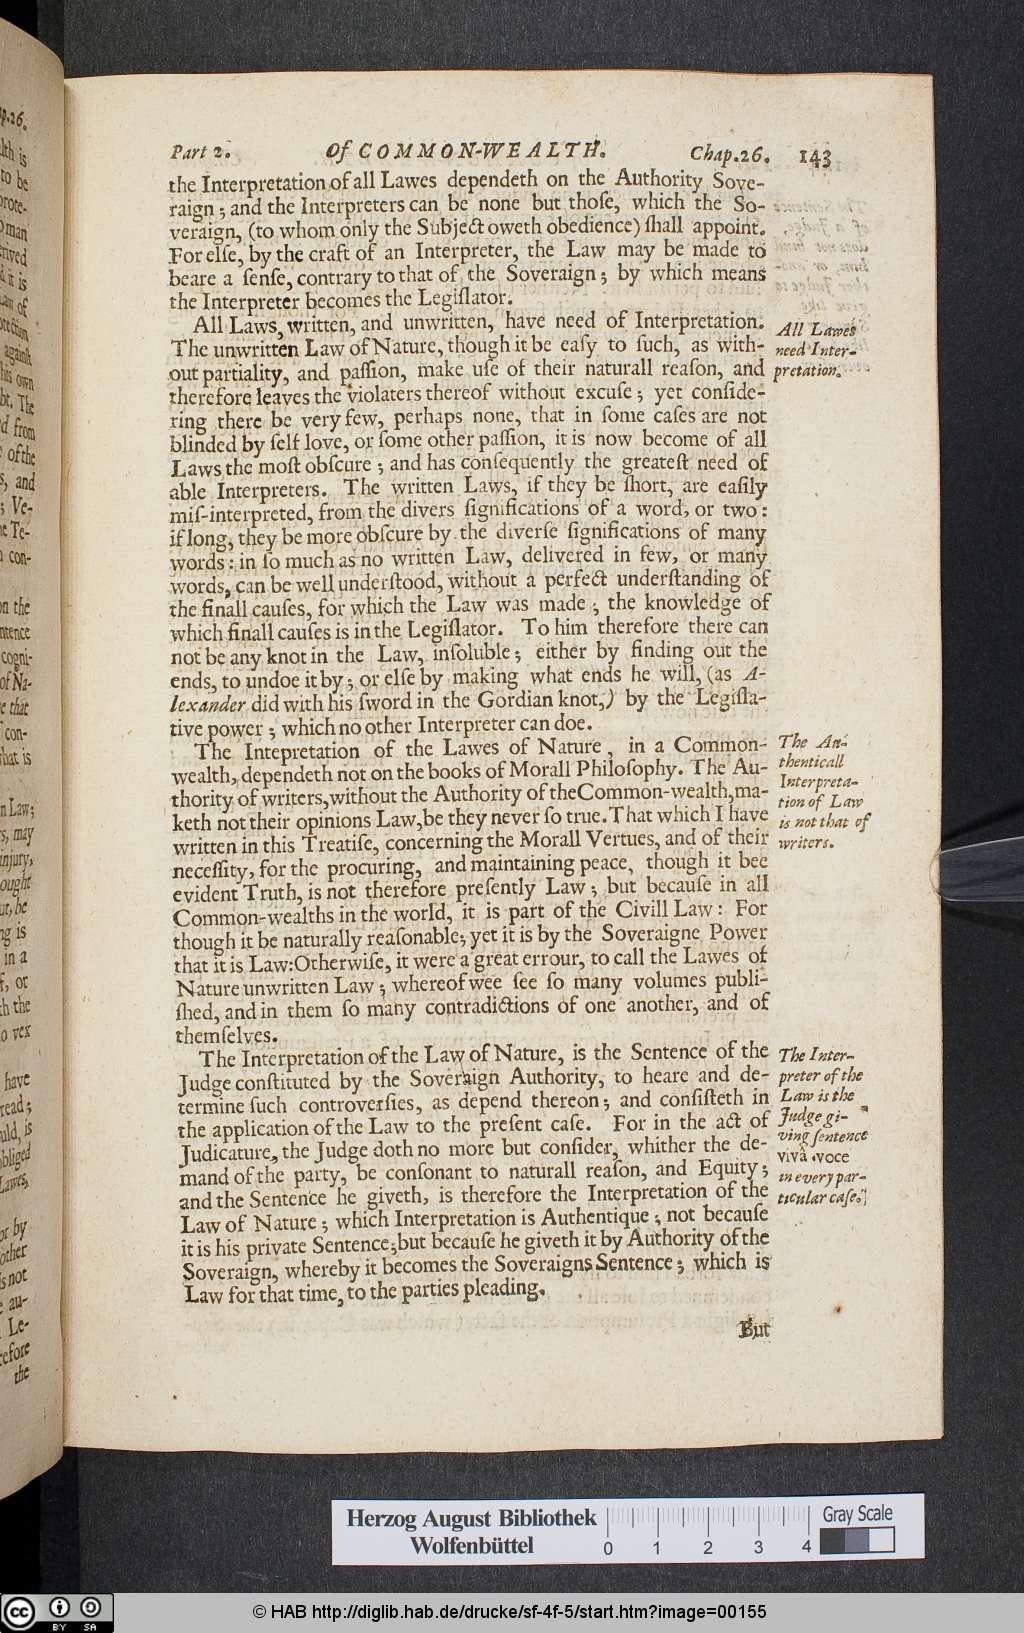 Part 2. Of COMMON-WEALTH. Chap.26. 143
the Interpretation of all Lawes dependeth on the Authority Sove-
raign; and the Interpreters can be none but thoſe, which the So-
veraign, (to whom only the Subject oweth obedience) ſhall appoint.
For elſe, by the craft of an Interpreter, the Law may be made to
beare a ſenſe, contrary to that of the Soveraign; by which means
the Interpreter becomes the Legiſlator.
All Laws, written, and unwritten, have need of Interpretation.
The unwritten Law of Nature, though it be eaſy to ſuch, as with-
out partiality, and paſſion, make uſe of their naturall reaſon, and
therefore leaves the violaters thereof without excuſe; yet conſide-
ring there be very few, perhaps none, that in ſome caſes are not
blinded by ſelf love, or ſome other paſſion, it is now become of all
Laws the moſt obſcure; and has conſequently the greateſt need of
able Interpreters. The written Laws, if they be ſhort, are eaſily
miſ-interpreted, from the divers ſignifications of a word, or two:
if long, they be more obſcure by the diverſe ſignifications of many
words: in ſo much as no written Law, delivered in few, or many
words, can be well underſtood, without a perfect underſtanding of
the finall cauſes, for which the Law was made; the knowledge of
which finall cauſes is in the Legiſlator. To him therefore there can
not be any knot in the Law, inſoluble; either by finding out the
ends, to undoe it by; or elſe by making what ends he will, (as A-
lexander did with his ſword in the Gordian knot,) by the Legiſla-
tive power; which no other Interpreter can doe.
All Lawes
need Inter-
pretation.
The Intepretation of the Lawes of Nature, in a Common-
wealth, dependeth not on the books of Morall Philoſophy. The Au-
thority of writers, without the Authority of the Common-wealth, ma-
keth not their opinions Law, be they never ſo true. That which I have
written in this Treatiſe, concerning the Morall Vertues, and of their
neceſſity, for the procuring, and maintaining peace, though it bee
evident Truth, is not therefore preſently Law; but becauſe in all
Common-wealths in the world, it is part of the Civill Law: For
though it be naturally reaſonable; yet it is by the Soveraigne Power
that it is Law: Otherwiſe, it were a great errour, to call the Lawes of
Nature unwritten Law; whereof wee ſee ſo many volumes publi-
ſhed, and in them ſo many contradictions of one another, and of
themſelves.
The Au-
thenticall
Interpreta-
tion of Law
is not that of
writers.
The Interpretation of the Law of Nature, is the Sentence of the
Judge conſtituted by the Soveraign Authority, to heare and de-
termine ſuch controverſies, as depend thereon; and conſiſteth in
the application of the Law to the preſent caſe. For in the act of
Judicature, the Judge doth no more but conſider, whither the de-
mand of the party, be conſonant to naturall reaſon, and Equity;
and the Sentence he giveth, is therefore the Interpretation of the
Law of Nature; which Interpretation is Authentique; not becauſe
it is his private Sentence; but becauſe he giveth it by Authority of the
Soveraign, whereby it becomes the Soveraigns Sentence; which is
Law for that time, to the parties pleading.
The Inter-
preter of the
Law is the
Judge gi-
ving ſentence
vivâ voce
in every par-
ticular caſe.
But
Herzog August Bibliothek
Wolfenbüttel
0 1 2 3 4
Gray Scale
cc BY SA
© HAB http://diglib.hab.de/drucke/sf-4f-5/start.htm?image=00155